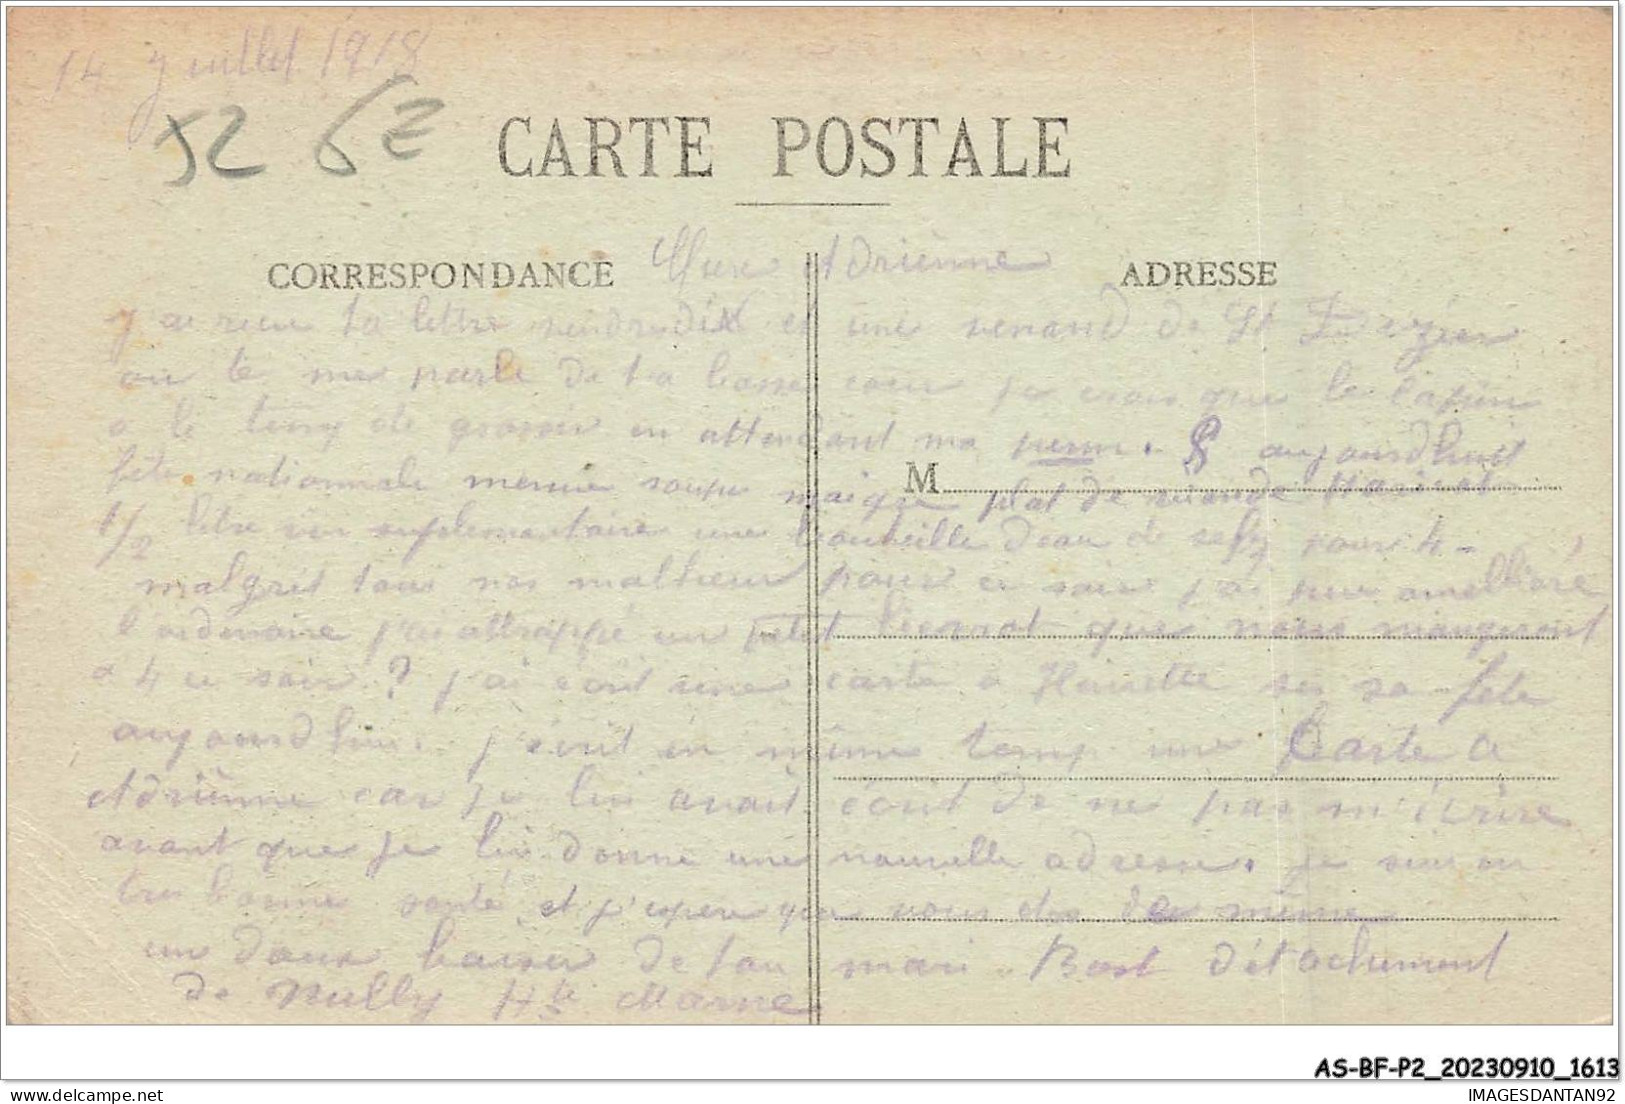 14 Juillet 1918
52 6E
CARTE POSTALE
CORRESPONDANCE
ADRESSE
Adrienne
J ai recu ta lettre vendredix et une venand de St Dizier
ou te me parle de ta basse cour je crois que le lapin
a le temp de grossir en attendant ma perm. aujourdhuit
fête nationnale menue soupe maigre plat de viande Haricot
M
1/2 litre vin suplementaire une bouteille deau de selz pour 4 -
malgrét tous nos malheur pour ce soir j'ai amelliore
l'ordinaire j'ai attrappé un petet que nous mangeront
a 4 ce soir ? j'ai écrit une carte a sa fete
aujourdhui. j'écrit en même temp une Carte a
Adriènne car je lui avait écrit de ne pas m'écrire
avant que je lui donne une nouvelle adresse. je suis en
tres bonne santé et j'espere que vous de même
un doux baiser de ton mari Bost détachement
de Nully Hte Marne
AS-BF-P2_20230910_1613
delcampe.net
IMAGESDANTAN92